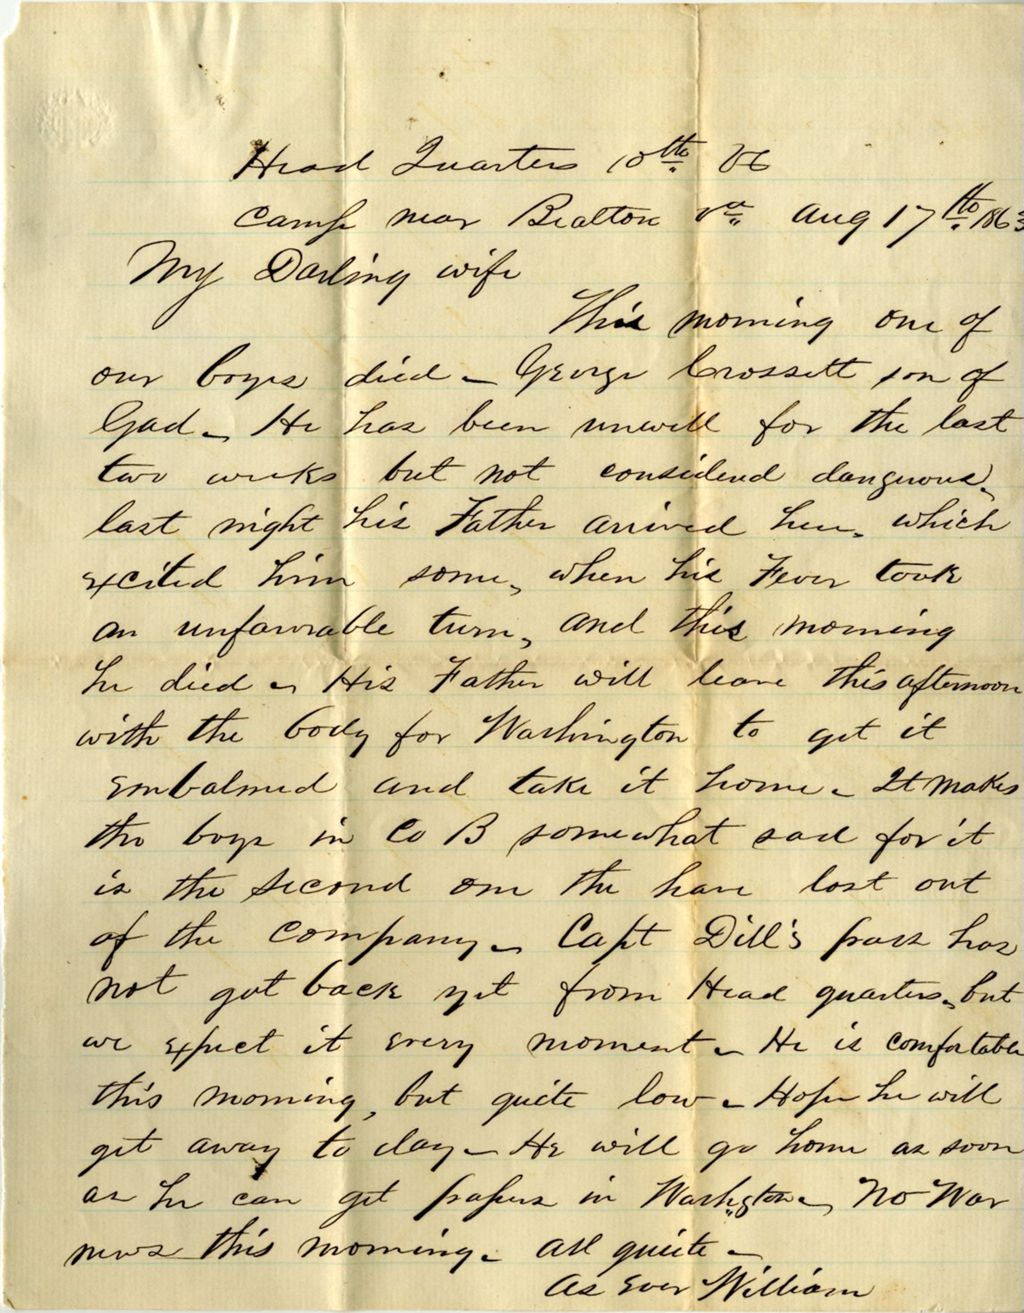 Head Quarters 10th Vt
Camp near Bealton Va Aug 17th 1863
My Darling wife
This morning one of
our boys died - George Crossett son of
Gad - He has been unwell for the last
two weeks but not considerd dangerous,
last night his Father arrived here, which
excited him some, when his Fever took
an unfavorable turn, and this morning
he died - His Father will leave this afternoon
with the body for Washington to get it
Embalmed and take it home - It makes
the boys in Co B somewhat sad for it
is the second one the have lost out
of the Company - Capt Dill's pass has
not got back yet from Head quarters, but
we expect it every moment - He is comfortable
this morning, but quite low - Hope he will
get away to day - He will go home as soon
as he can get papers in Washgton - No War
news this morning - All quite -
As Ever William